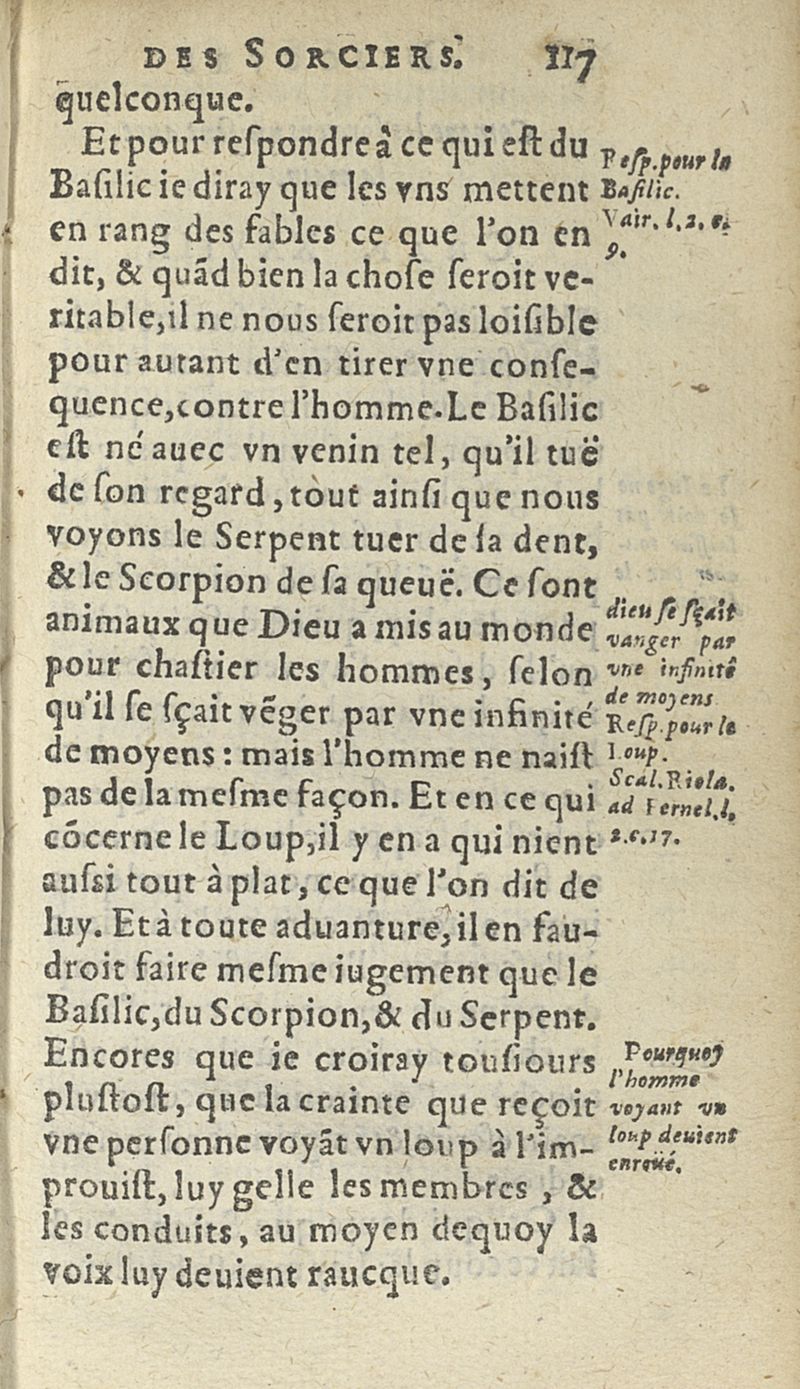 DES SORCIERS. 117
quelconque.
Et pour reſpondre à ce qui eſt du
Baſilic ie diray que les vns mettent
en rang des fables ce que l'on en
dit, & quãd bien la choſe ſeroit ve-
ritable, il ne nous ſeroit pas loiſible
pour autant d'en tirer vne conſe-
quence, contre l'homme. Le Baſilic
eſt né auec vn venin tel, qu'il tuë
de ſon regard, tout ainſi que nous
voyons le Serpent tuer de ſa dent,
& le Scorpion de ſa queuë. Ce ſont
animaux que Dieu a mis au monde
pour chaſtier les hommes, ſelon
qu'il ſe ſçait vẽger par vne infinité
de moyens : mais l'homme ne naiſt
pas de la meſme façon. Et en ce qui
cõcerne le Loup, il y en a qui nient
auſsi tout à plat, ce que l'on dit de
luy. Et à toute aduanture, il en fau-
droit faire meſme iugement que le
Baſilic, du Scorpion, & du Serpent.
Encores que ie croiray touſiours
pluſtoſt, que la crainte que reçoit
vne perſonne voyãt vn loup à l'im-
prouiſt, luy gelle les membres, &
les conduits, au moyen dequoy la
voix luy deuient raucque.
Reſp. pour le
Baſilic.
Vair. l. 2. c.
9.
dieu ſe ſçait
vanger par
vne infinité
de moyens
Reſp. pour le
Loup.
Scal. Riola.
ad Fernel. l.
2. c. 17.
Pourquoy
l'homme
voyant vn
loup deuient
enroué.